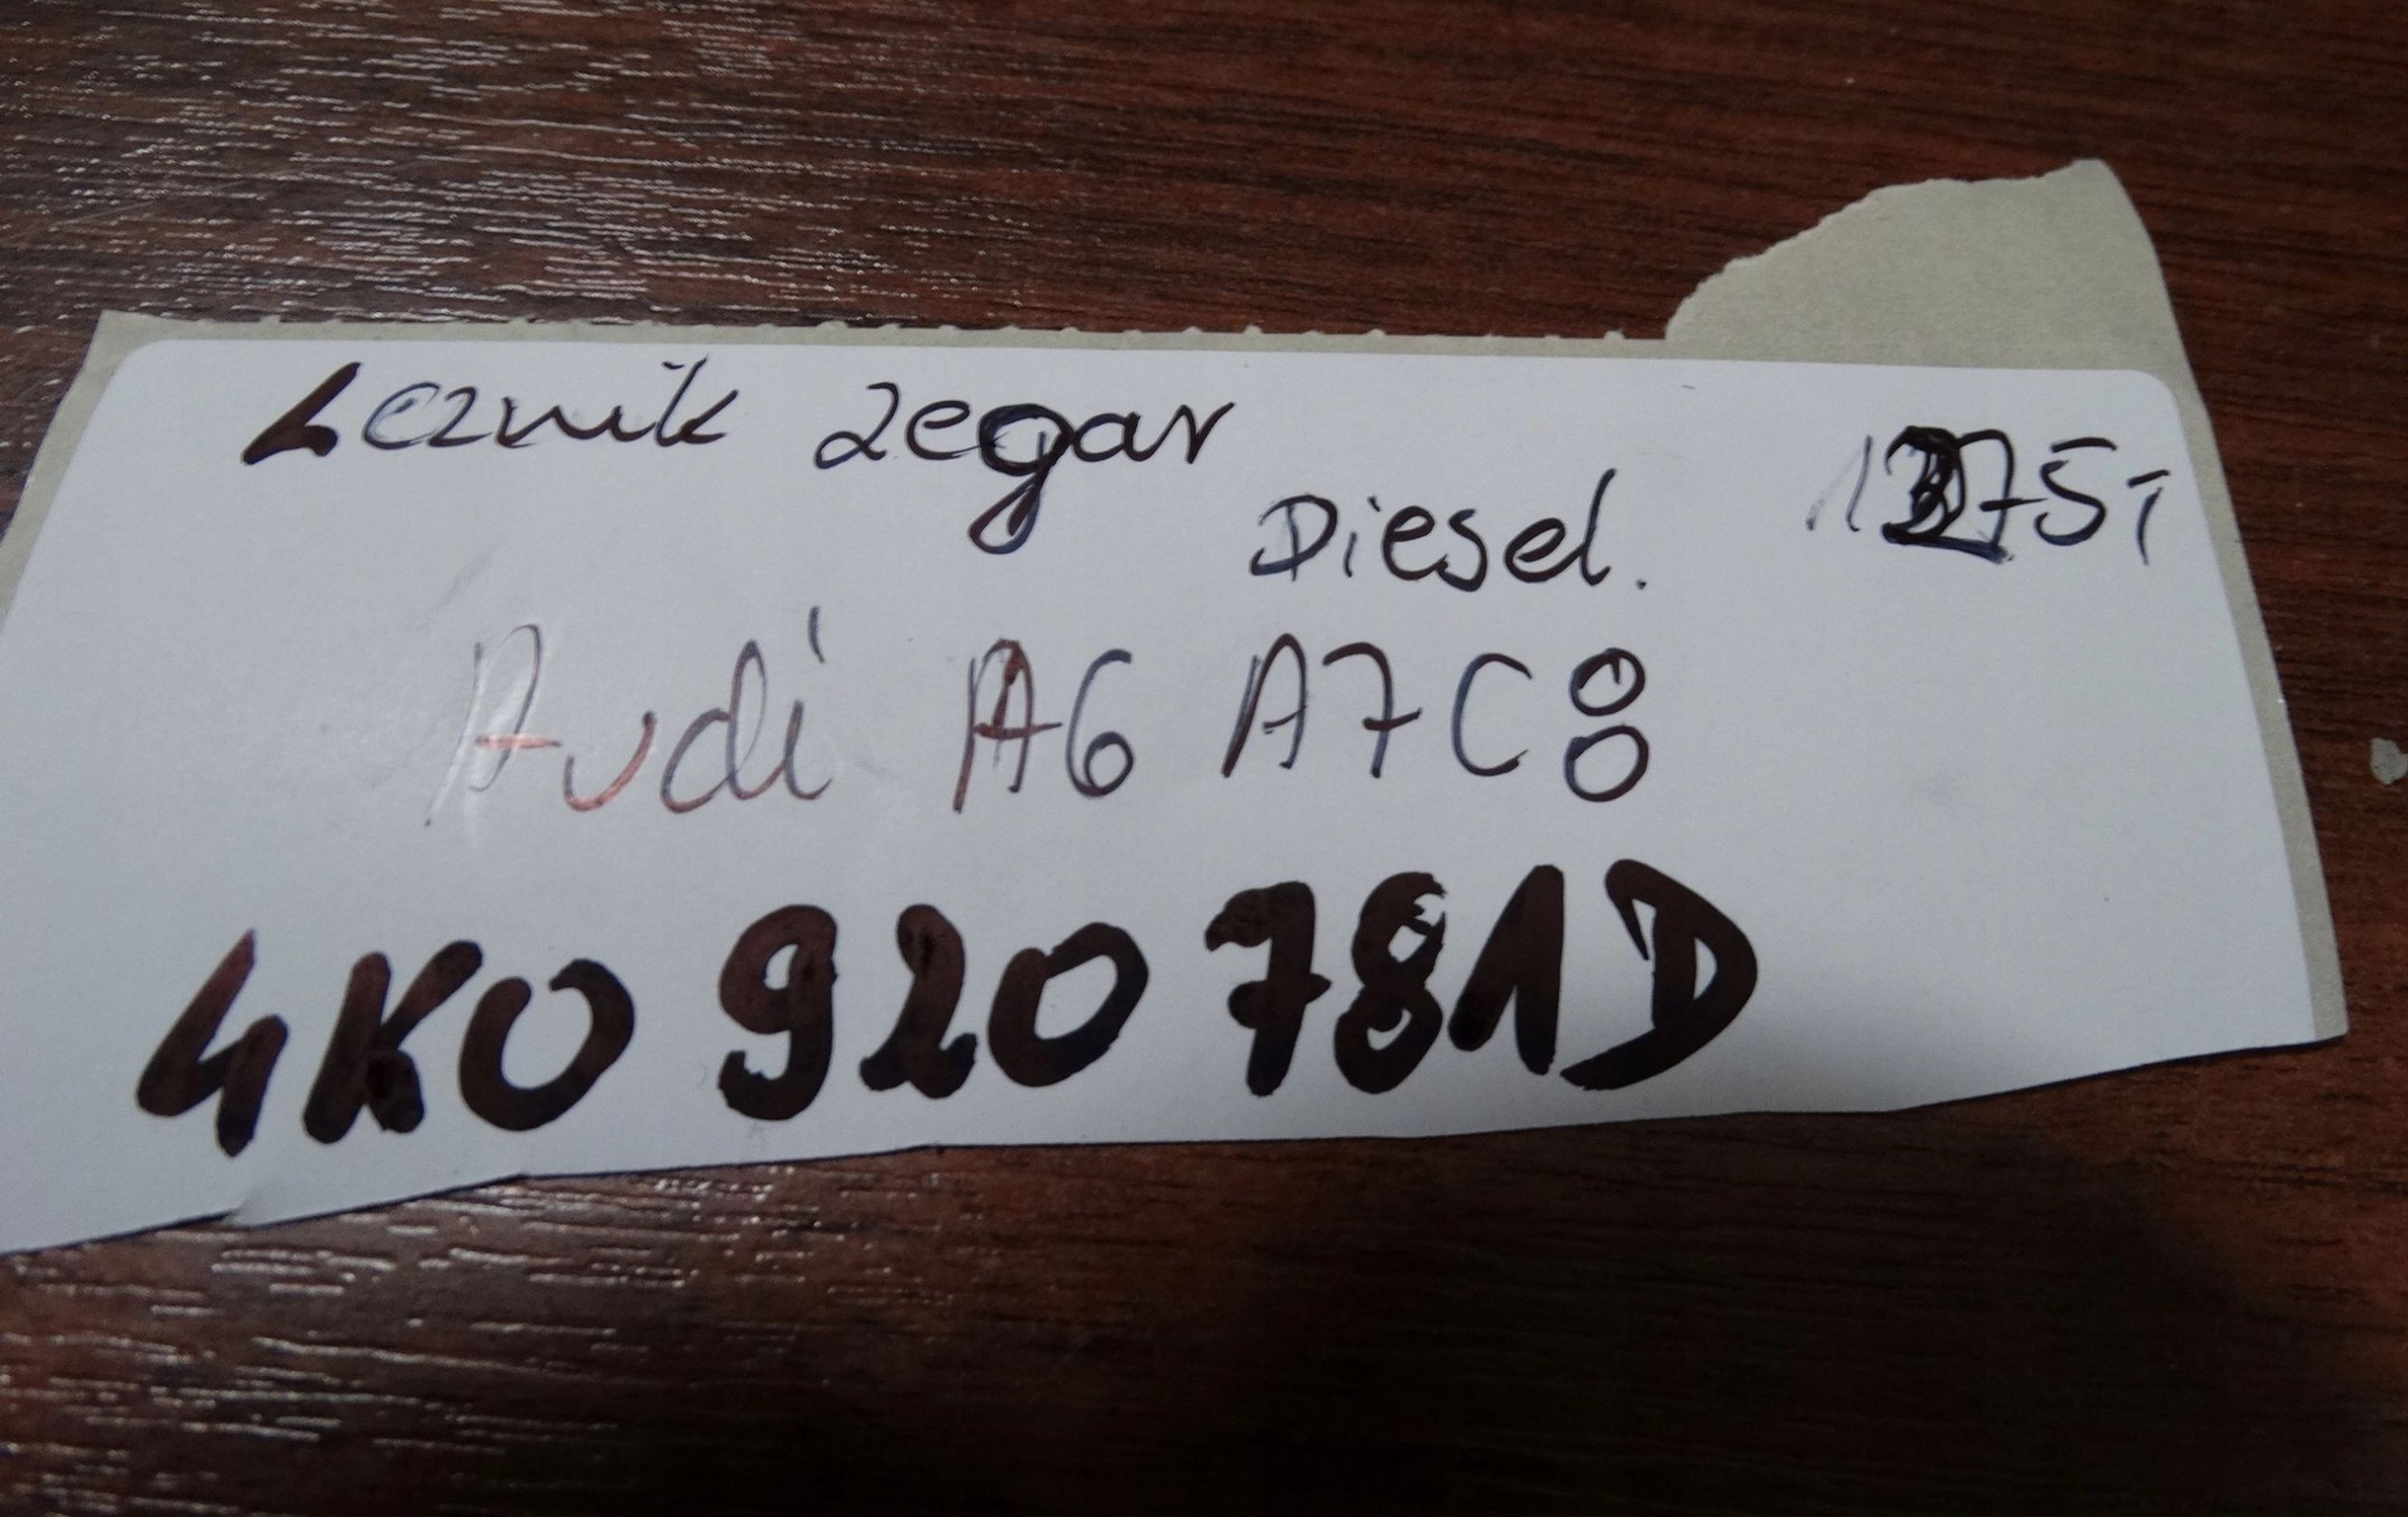 Lcznik zegar
Diesel.
Audi A6 A7 C8
4K0 920 781D